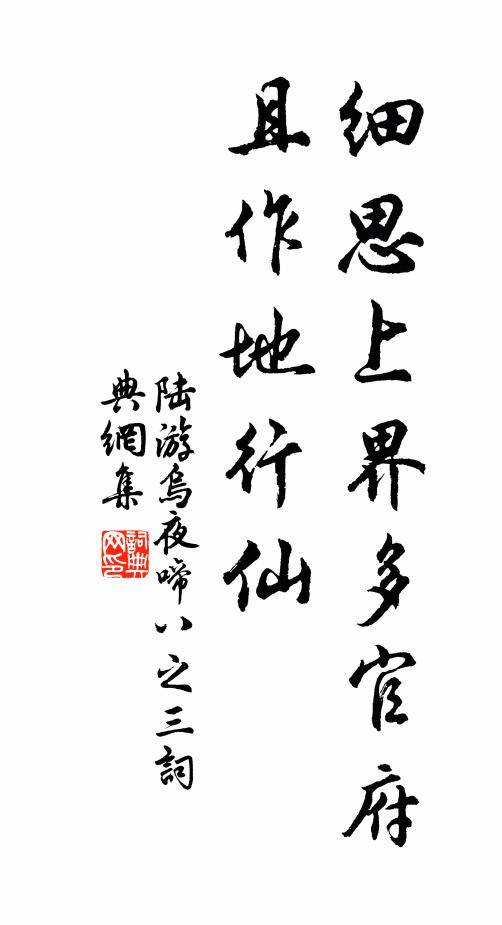 细思上界多官府
且作地行仙
陆游烏夜啼八之三詞
典網集
詞典
网印